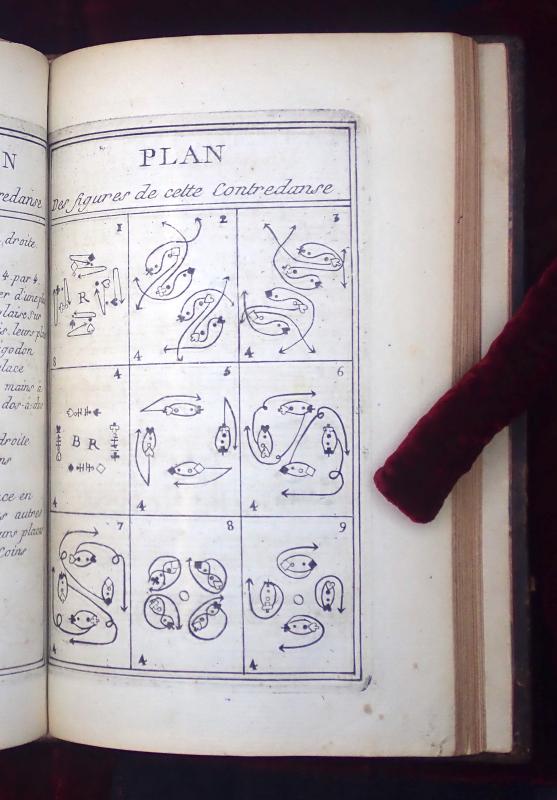 N
redanse
droite.
4. par 4.
er d'une pla
laise sur
is, leurs plac
igodon
lace
mains à
dos-à-dos
droite
ns
ace en
s autres
urs place
Coins
PLAN
Des figures de cette Contredanse
1 2 3
R
8 4 4
4 5 6
B R
4 4
7 8 9
4 4 4